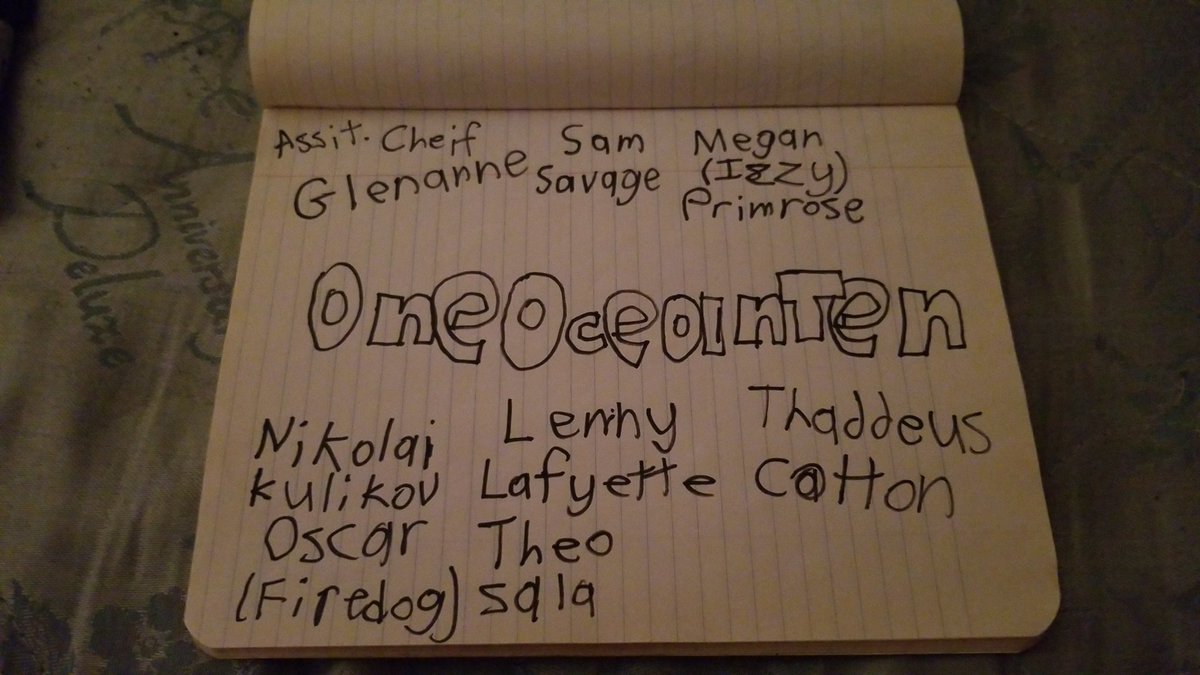 Assit. Cheif
Glenanne
Sam
Savage
Megan
(Izzy)
Primrose
OneOceanTen
Nikolai
Kulikov
Oscar
(Firedog)
Lenny
Lafyette
Theo
Sala
Thaddeus
Cotton
Anniversary
Deluxe